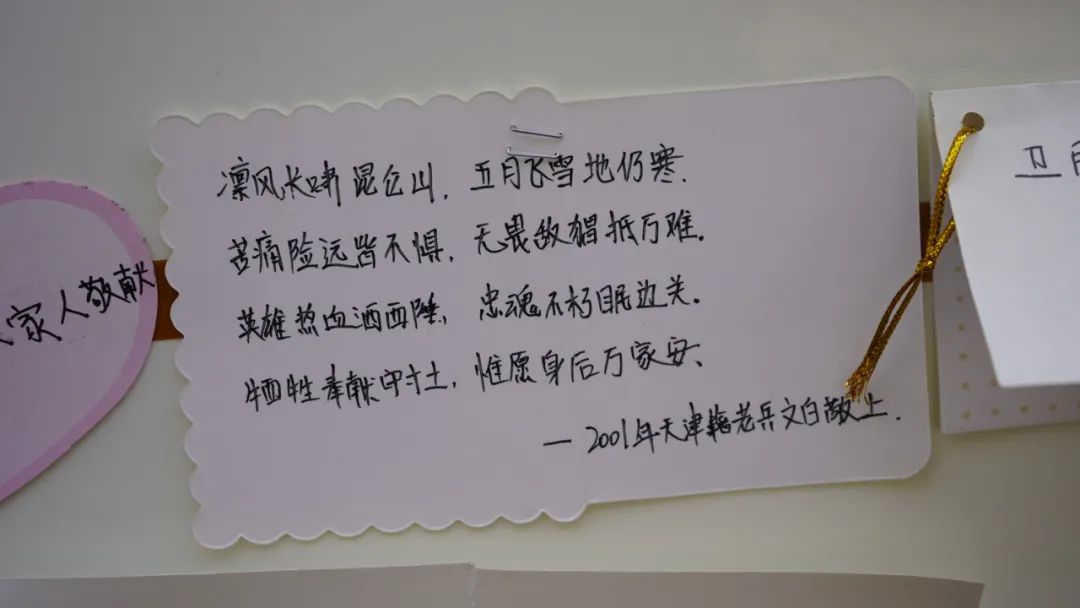 凛风长啸昆仑山，五月飞雪地仍寒.
苦痛险远皆不惧，无畏敌猖抵万难.
英雄热血洒西陲，忠魂不朽眠边关.
牺牲奉献守寸土，惟愿身后万家安、
— 2001年天津籍老兵文白敬上.
家人敬献
卫